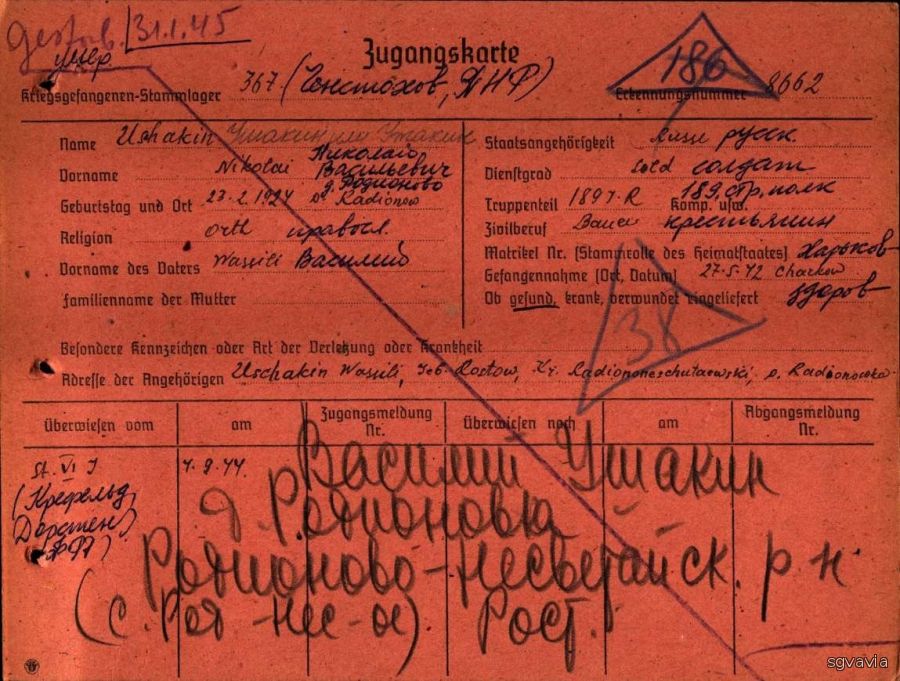 gestorb. 31.1.45
умер.
Zugangskarte
186
Kriegsgefangenen-Stammlager 367 (Ченстохов, ПНР) Erkennungsnummer 8662
Name Ushakin Ушакин или Ушакин
Vorname Nikolai Николай Васильевич
Geburtstag und Ort 23.2.1924 Radionow д. Родионово
Religion orth правосл.
Vorname des Vaters Wassili Василий
Familienname der Mutter
Staatsangehörigkeit Russe русск.
Dienstgrad Sold солдат
Truppenteil 189 I-R Komp. usw. 189 стр. полк
Zivilberuf Bauer крестьянин
Matrikel Nr. (Stammrolle des Heimatstaates) Харьков
Gefangennahme (Ort, Datum) 27.5.42 Charkow
Ob gesund, krank, verwundet eingeliefert здоров
38
Besondere Kennzeichen oder Art der Verletzung oder Krankheit
Adresse der Angehörigen Uschakin Wassili, Geb. Rostow, Kr. d. Radionowka
Überwiesen vom am Zugangsmeldung Nr. Überwiesen nach am Abgangsmeldung Nr.
St. VI J 4.9.44
(Крефельд
Дорстен)
(ФРГ)
Василий Ушакин
д. Родионовка
Родионово-Несветайск. р-н
(с. Род-Нес-ое) Рост.
sgvavia